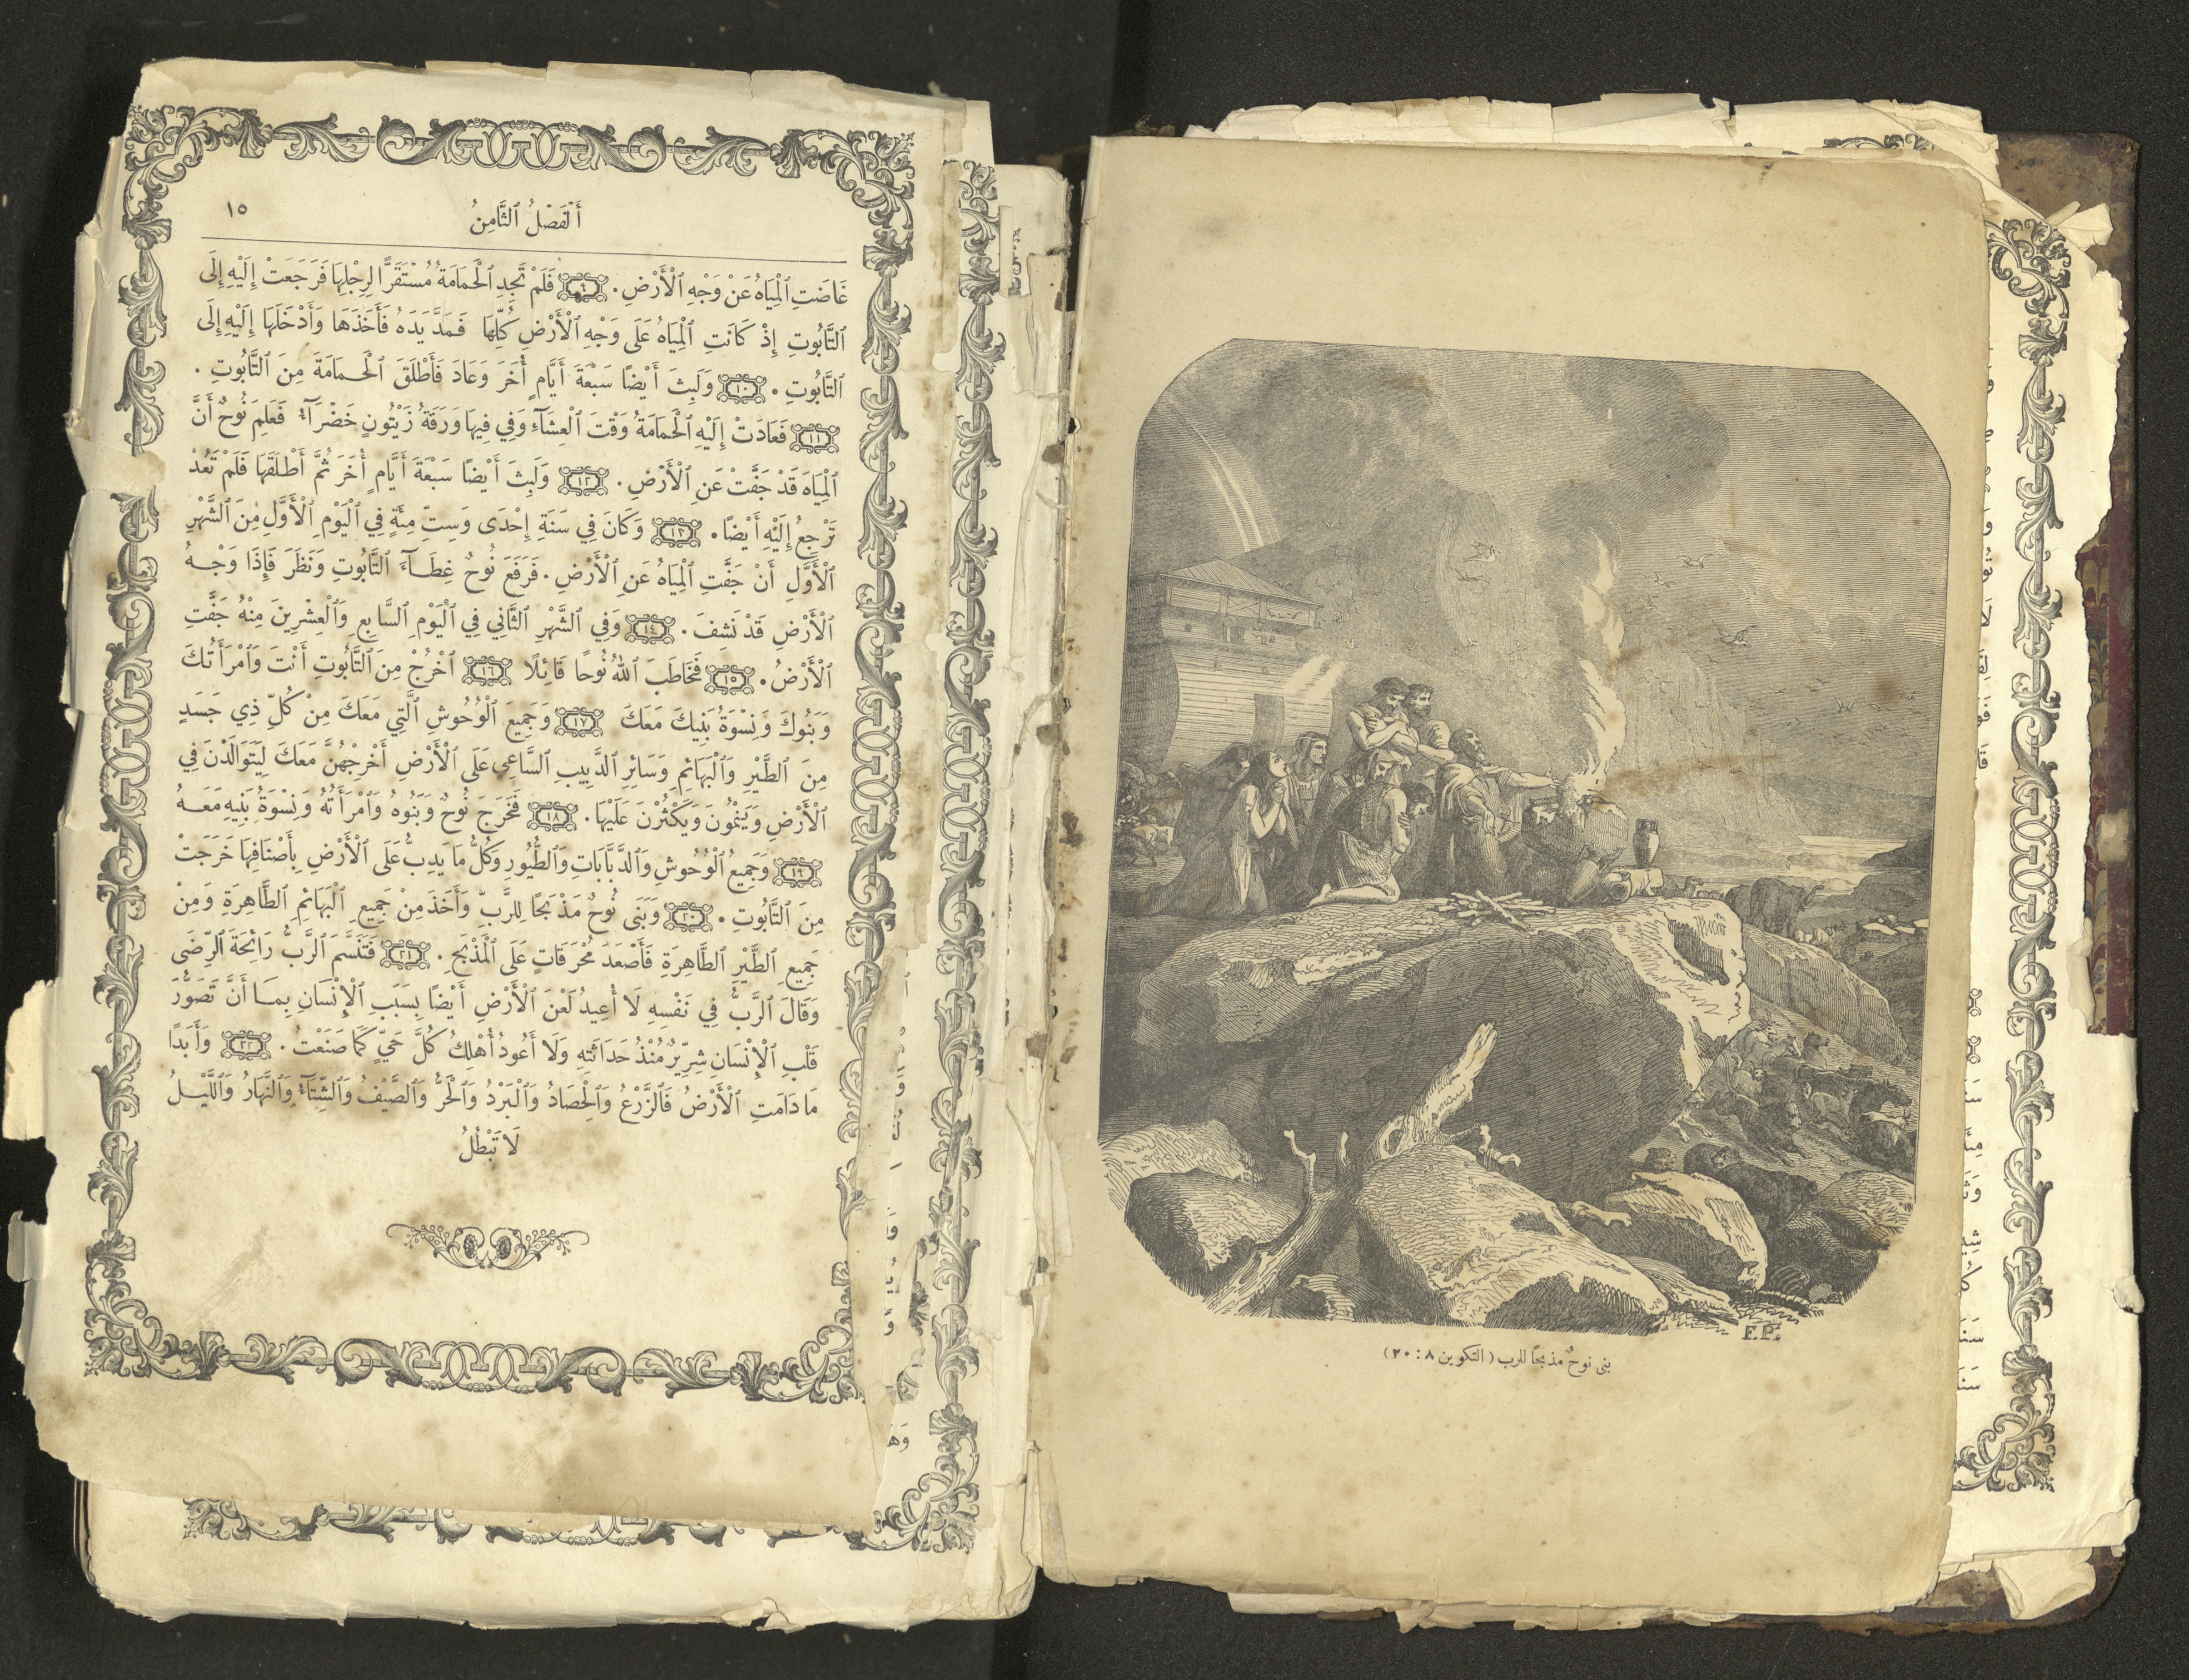 بنى نوحٌ مذبحًا للرب (التكوين ٨ : ٢٠)
F.P.
أَلْفَصْلُ ٱلثَّامِنُ
١٥
غَاضَتِ ٱلْمِيَاهُ عَنْ وَجْهِ ٱلْأَرْضِ. ٩ فَلَمْ تَجِدِ ٱلْحَمَامَةُ مُسْتَقَرًّا لِرِجْلِهَا فَرَجَعَتْ إِلَيْهِ إِلَى
ٱلتَّابُوتِ إِذْ كَانَتِ ٱلْمِيَاهُ عَلَى وَجْهِ ٱلْأَرْضِ كُلِّهَا فَمَدَّ يَدَهُ فَأَخَذَهَا وَأَدْخَلَهَا إِلَيْهِ إِلَى
ٱلتَّابُوتِ. ١٠ وَلَبِثَ أَيْضًا سَبْعَةَ أَيَّامٍ أُخَرَ وَعَادَ فَأَطْلَقَ ٱلْحَمَامَةَ مِنَ ٱلتَّابُوتِ.
١١ فَعَادَتْ إِلَيْهِ ٱلْحَمَامَةُ وَقْتَ ٱلْعِشَآءِ وَفِي فِيهَا وَرَقَةُ زَيْتُونٍ خَضْرَآءُ فَعَلِمَ نُوحٌ أَنَّ
ٱلْمِيَاهَ قَدْ جَفَّتْ عَنِ ٱلْأَرْضِ. ١٢ وَلَبِثَ أَيْضًا سَبْعَةَ أَيَّامٍ أُخَرَ ثُمَّ أَطْلَقَهَا فَلَمْ تَعُدْ
تَرْجِعُ إِلَيْهِ أَيْضًا. ١٣ وَكَانَ فِي سَنَةِ إِحْدَى وَسِتِّ مِئَةٍ فِي ٱلْيَوْمِ ٱلْأَوَّلِ مِنَ ٱلشَّهْرِ
ٱلْأَوَّلِ أَنْ جَفَّتِ ٱلْمِيَاهُ عَنِ ٱلْأَرْضِ. فَرَفَعَ نُوحٌ غِطَآءَ ٱلتَّابُوتِ وَنَظَرَ فَإِذَا وَجْهُ
ٱلْأَرْضِ قَدْ نَشِفَ. ١٤ وَفِي ٱلشَّهْرِ ٱلثَّانِي فِي ٱلْيَوْمِ ٱلسَّابِعِ وَٱلْعِشْرِينَ مِنْهُ جَفَّتِ
ٱلْأَرْضُ. ١٥ فَخَاطَبَ ٱللهُ نُوحًا قَائِلًا ١٦ ٱخْرُجْ مِنَ ٱلتَّابُوتِ أَنْتَ وَٱمْرَأَتُكَ
وَبَنُوكَ وَنِسْوَةُ بَنِيكَ مَعَكَ ١٧ وَجَمِيعَ ٱلْوُحُوشِ ٱلَّتِي مَعَكَ مِنْ كُلِّ ذِي جَسَدٍ
مِنَ ٱلطَّيْرِ وَٱلْبَهَائِمِ وَسَائِرِ ٱلدَّبِيبِ ٱلسَّاعِي عَلَى ٱلْأَرْضِ أَخْرِجْهُنَّ مَعَكَ لِيَتَوَالَدْنَ فِي
ٱلْأَرْضِ وَيَنْمُونَ وَيَكْثُرْنَ عَلَيْهَا. ١٨ فَخَرَجَ نُوحٌ وَبَنُوهُ وَٱمْرَأَتُهُ وَنِسْوَةُ بَنِيهِ مَعَهُ
١٩ وَجَمِيعُ ٱلْوُحُوشِ وَٱلدَّبَّابَاتِ وَٱلطُّيُورِ وَكُلُّ مَا يَدِبُّ عَلَى ٱلْأَرْضِ بِأَصْنَافِهَا خَرَجَتْ
مِنَ ٱلتَّابُوتِ. ٢٠ وَبَنَى نُوحٌ مَذْبَحًا لِلرَّبِّ وَأَخَذَ مِنْ جَمِيعِ ٱلْبَهَائِمِ ٱلطَّاهِرَةِ وَمِنْ
جَمِيعِ ٱلطَّيْرِ ٱلطَّاهِرَةِ فَأَصْعَدَ مُحْرَقَاتٍ عَلَى ٱلْمَذْبَحِ. ٢١ فَتَنَسَّمَ ٱلرَّبُّ رَائِحَةَ ٱلرِّضَى
وَقَالَ ٱلرَّبُّ فِي نَفْسِهِ لَا أُعِيدُ لَعْنَ ٱلْأَرْضِ أَيْضًا بِسَبَبِ ٱلْإِنْسَانِ بِمَا أَنَّ تَصَوُّرَ
قَلْبِ ٱلْإِنْسَانِ شِرِّيرٌ مُنْذُ حَدَاثَتِهِ وَلَا أَعُودُ أُهْلِكُ كُلَّ حَيٍّ كَمَا صَنَعْتُ. ٢٢ وَأَبَدًا
مَا دَامَتِ ٱلْأَرْضُ فَٱلزَّرْعُ وَٱلْحِصَادُ وَٱلْبَرْدُ وَٱلْحَرُّ وَٱلصَّيْفُ وَٱلشِّتَآءُ وَٱلنَّهَارُ وَٱللَّيْلُ
لَا تَبْطُلُ